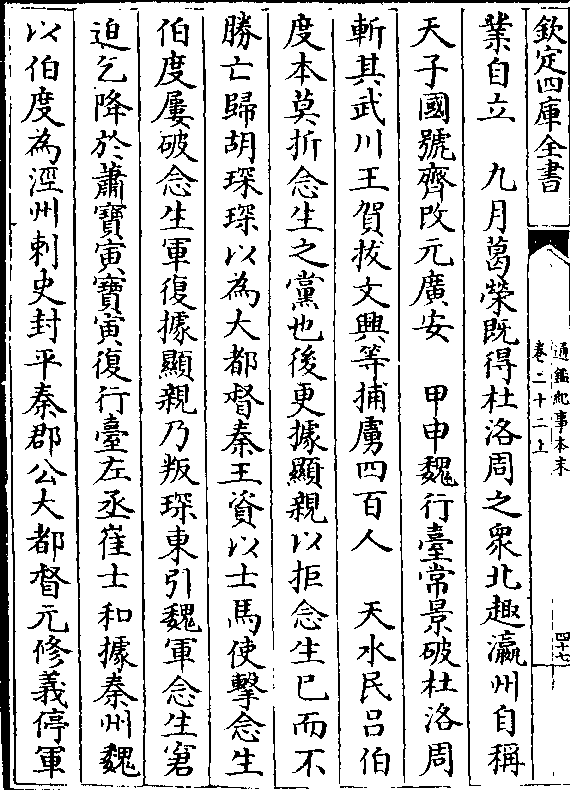 欽定四庫全書
通鑑紀事本末
卷二十二上
四十七
業自立　九月葛榮既得杜洛周之衆北趣瀛州自稱
天子國號齊改元廣安　甲申魏行臺常景破杜洛周
斬其武川王賀拔文興等捕虜四百人　天水民吕伯
度本莫折念生之黨也後更據顯親以拒念生已而不
勝亡歸胡琛琛以為大都督秦王資以士馬使擊念生
伯度屢破念生軍復據顯親乃叛琛東引魏軍念生窘
迫乞降於蕭寶寅寶寅復行臺左丞崔士和據秦州魏
以伯度為涇州刺史封平秦郡公大都督元修義停軍